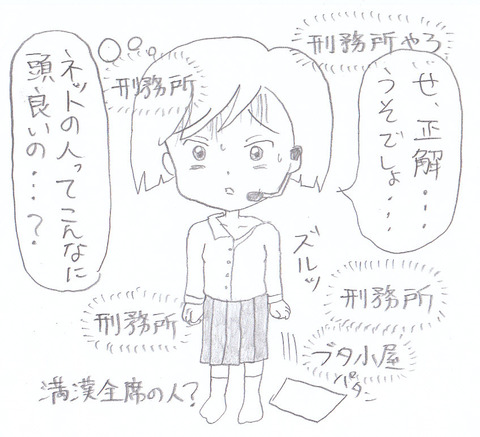 刑務所やろ
せ、正解・・・
うそでしょ・・・
刑務所
ネットの人ってこんなに
頭良いの・・・?
ズルッ
刑務所
刑務所
ブタ小屋
パタン
満漢全席の人?